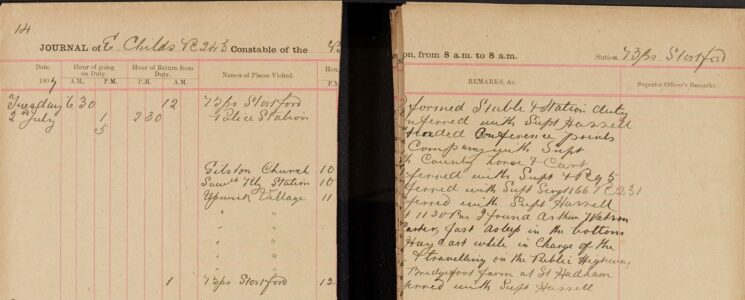 14
JOURNAL of E Childs PC 243 Constable of the
Date. Hour of going on Duty. Hour of Return from Duty. Names of Places Visited. Hou
1907 A.M. P.M. P.M. A.M. P.M.
Tuesday 6 30 12 B/ps Stortford
2nd July 1 2 30 Police Station
5
Gilston Church 10
Sawth Rly Station 10
Upwick Village 11
" "
" "
" "
1 B/ps Stortford 12
on, from 8 a.m. to 8 a.m. Station B/ps Stortford
REMARKS, &c. Superior Officer's Remarks.
formed Stable & Station duty
nferred with Supt Hassell
Conference points
Company with Supt
County horse & Cart
ferred with Supt & PC 95
ferred with Supt Sergt 166 PC 231
ferred with Supt Hassell
t 11 30 P.m I found Arthur Watson
fast asleep in the bottom
Hay Cart while in Charge of the
& travelling on the Public Highway
Bridgefoot farm at St Hadham
erred with Supt Hassell